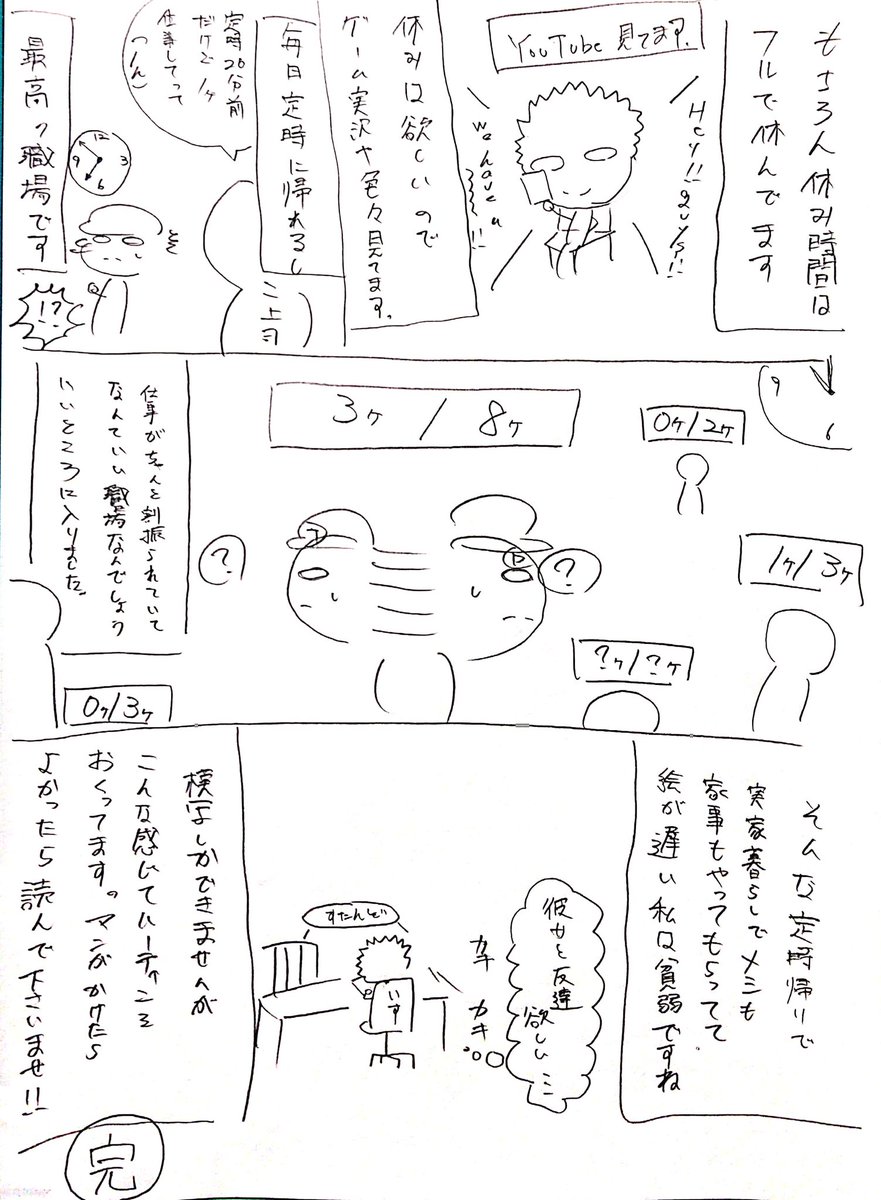 もちろん休み時間は
フルで休んでます
YouTube見てます。
Hey!! guys!!
We have a
!!
休みは欲しいので
ゲーム実況や色々見てます。
毎日定時に帰れるし
定時20分前
だけど1ヶ
仕事してって
つ(ん)
ミ上司
最高の職場です
12
3
6
9
!?
9
6
0ヶ/2ヶ
1ヶ/3ヶ
3ヶ/8ヶ
?
?
?ヶ/?ヶ
0ヶ/3ヶ
仕事がちゃんと割振られていて
なんていい職場なんでしょう
いいところに入りました。
そんな定時帰りで
実家暮らしでメシも
家事もやってもらってて
絵が遅い私は貧弱ですね
彼女と友達
欲しい…
カキ
カキ…
すたんど
いす
模写しかできませんが
こんな感じでルーティンを
おくってます。マンガかけたら
よかったら読んで下さいませ!!
完